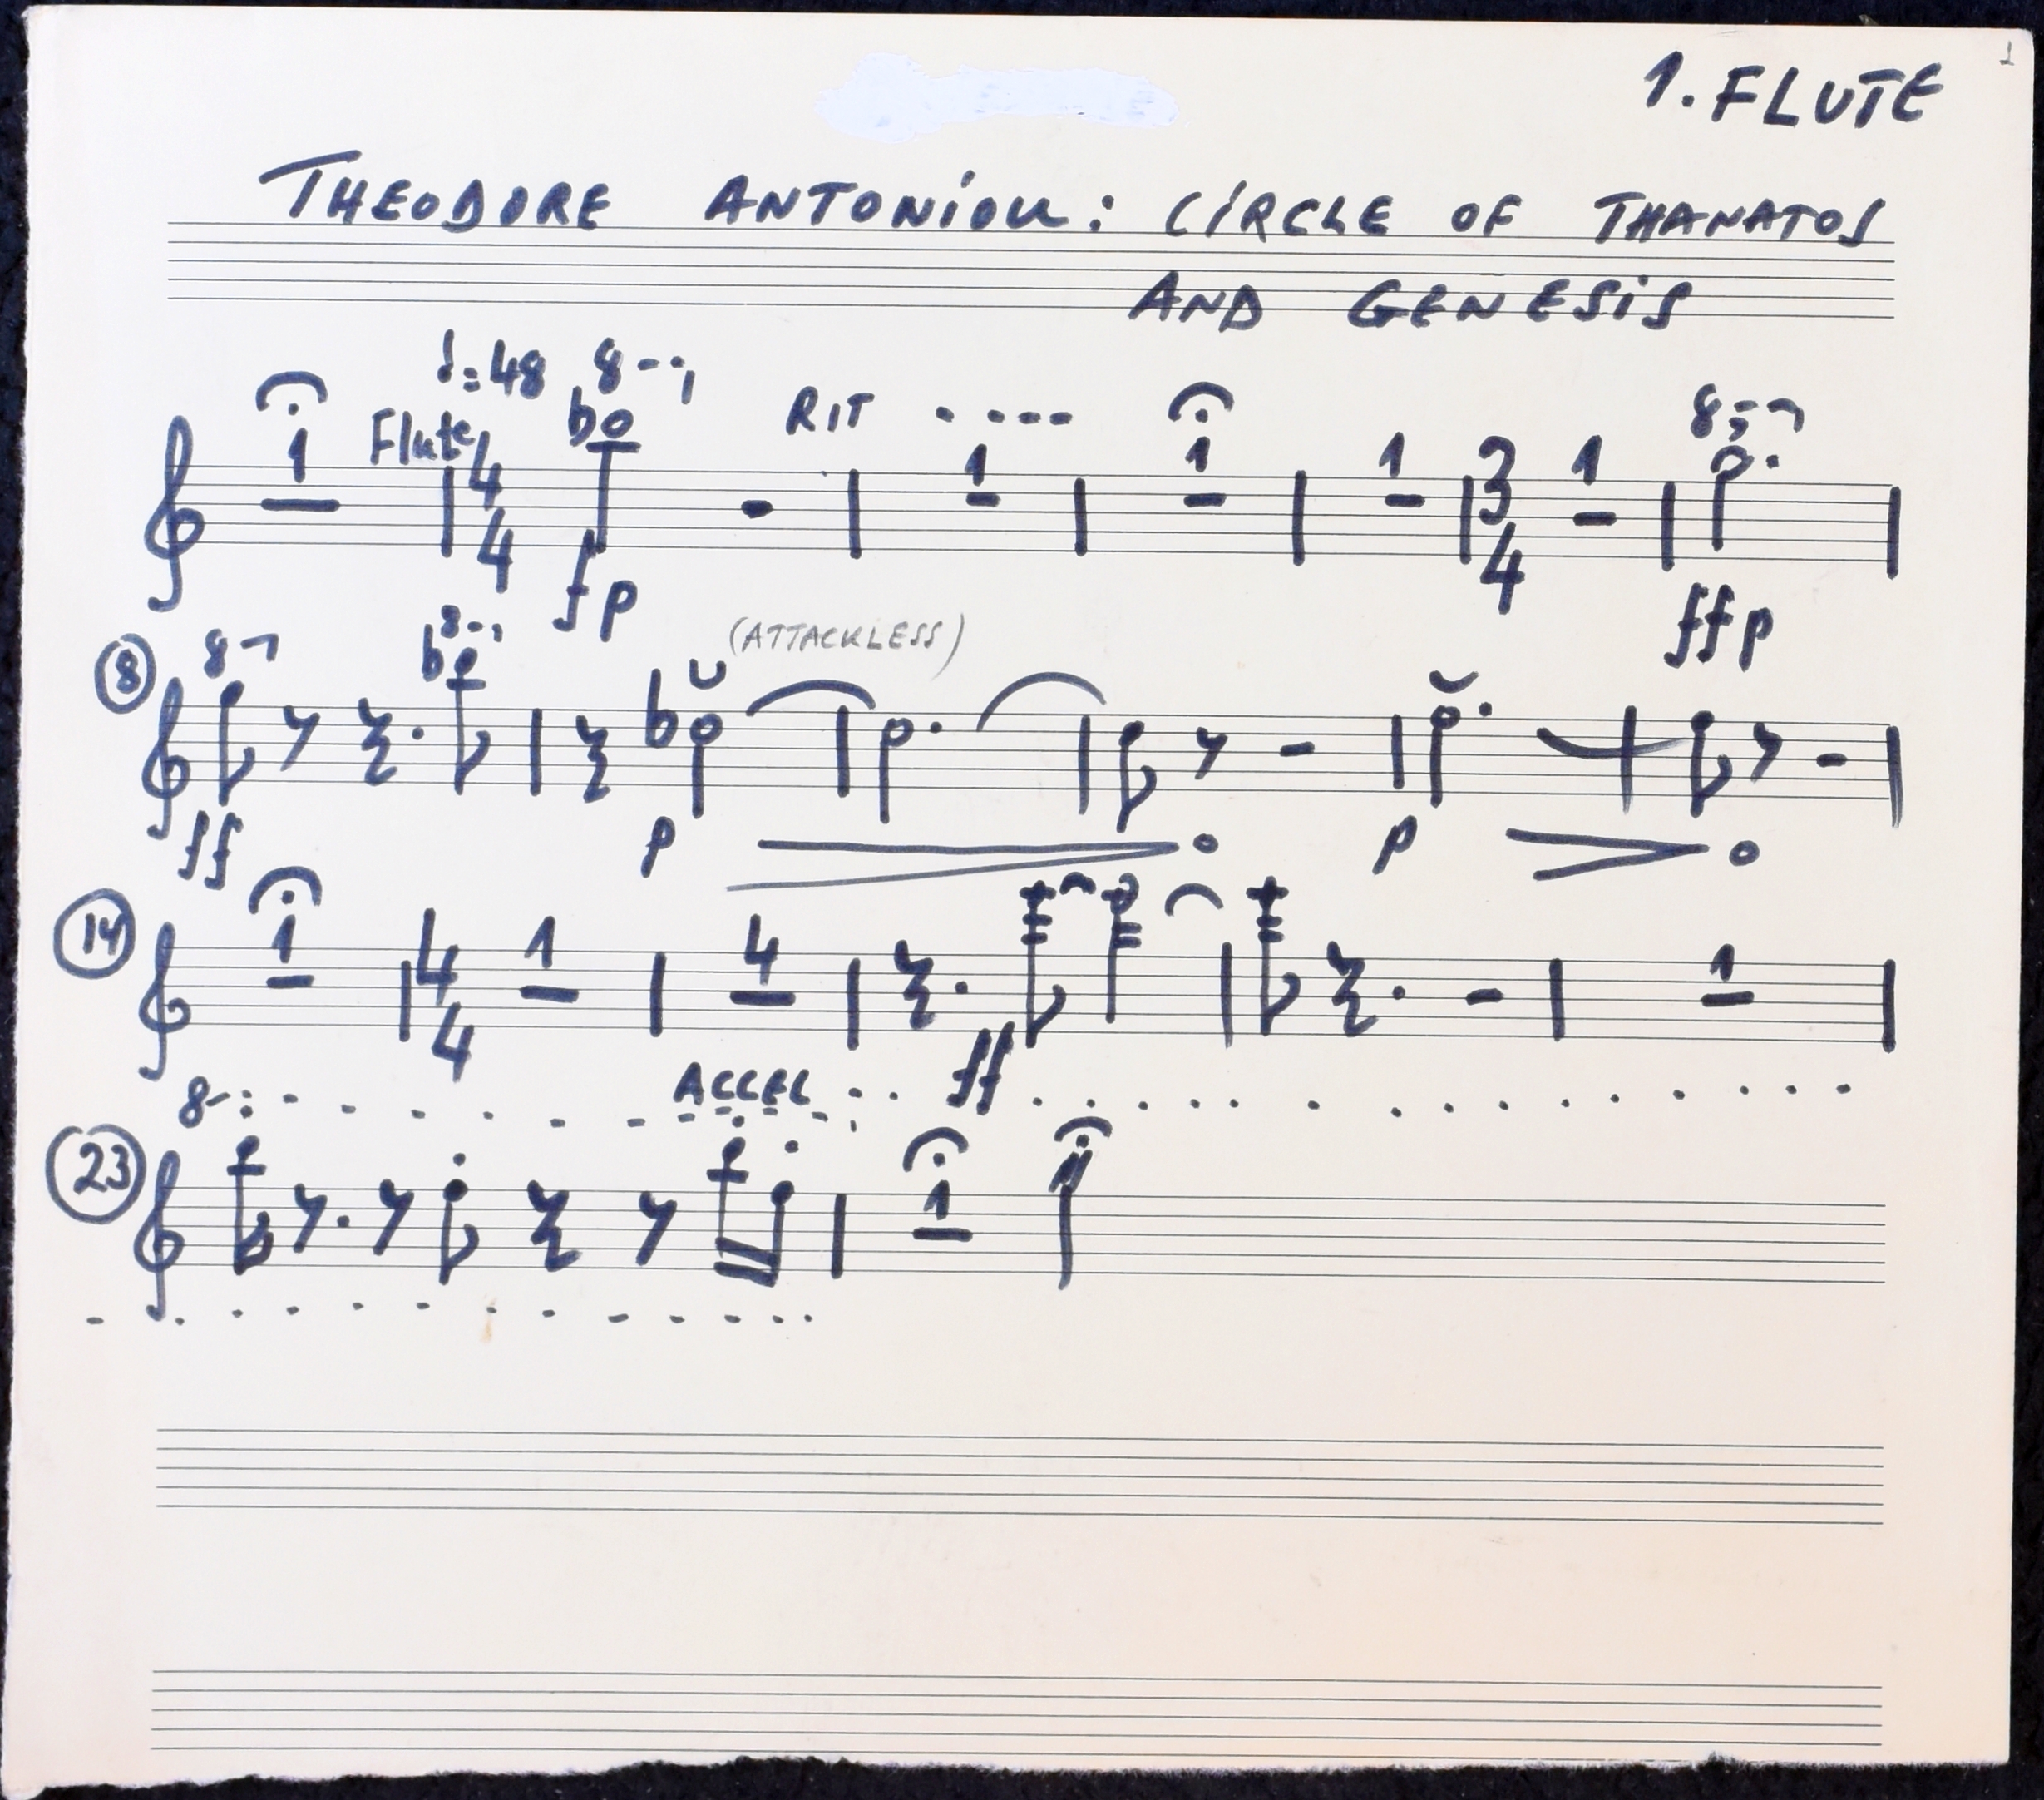 1
1. FLUTE
THEODORE ANTONIOU: CIRCLE OF THANATOS
AND GENESIS
♩=48 8
Flute RIT 8
1 4/4 1 1 1 3/4 1
fp ffp
8 8 8
(ATTACKLESS)
ff p p
14 1 4/4 1 4
ff
8 ACCEL
23 1